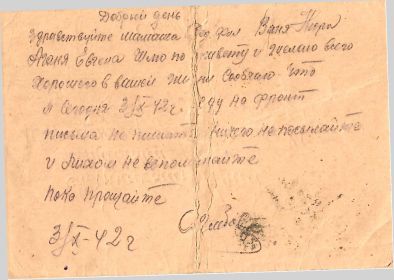 Добрый день
Здравствуйте мамаша Ваня Шура
Евгена Шлю по привету и желаю всего
Хорошего в вашей жизни Сообщаю Что
я Сегодня 3/X-42г еду на фронт
письма не пишите ничего не посылайте
и лихом не вспоминайте
пока прощайте
3/X-42г